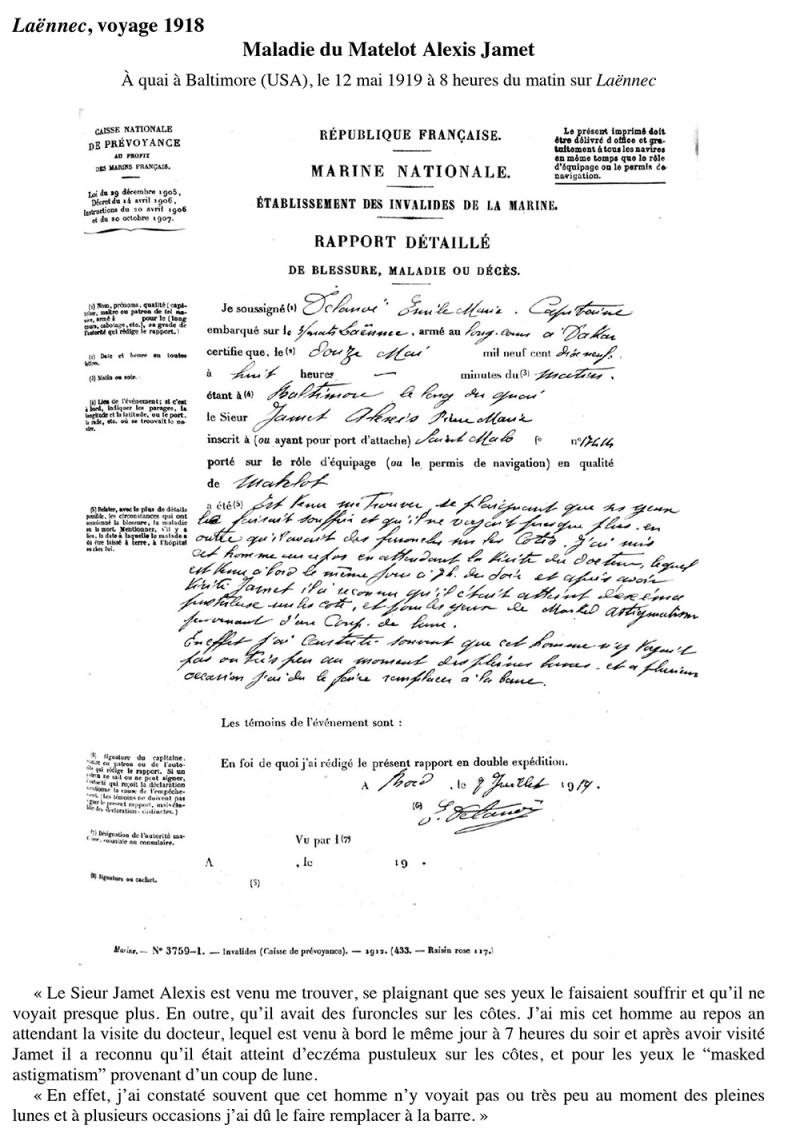 Laënnec, voyage 1918
Maladie du Matelot Alexis Jamet
À quai à Baltimore (USA), le 12 mai 1919 à 8 heures du matin sur Laënnec
CAISSE NATIONALE
DE PRÉVOYANCE
AU PROFIT
DES MARINS FRANÇAIS.
Loi du 29 décembre 1905,
Décret du 14 avril 1906,
Instructions du 20 avril 1906
et du 20 octobre 1907.
RÉPUBLIQUE FRANÇAISE.
MARINE NATIONALE.
ÉTABLISSEMENT DES INVALIDES DE LA MARINE.
RAPPORT DÉTAILLÉ
DE BLESSURE, MALADIE OU DÉCÈS.
Le présent imprimé doit
être délivré d'office et gra-
tuitement à tous les navires
en même temps que le rôle
d'équipage ou le permis de
navigation.
(1) Nom, prénoms, qualité (capi-
taine, maître ou patron de tel na-
vire, armé à pour le (long
cours, cabotage, etc.), ou grade de
l'autorité qui rédige le rapport.)
(2) Date et heure en toutes
lettres.
(3) Matin ou soir.
(4) Lieu de l'événement; si c'est
à bord, indiquer les parages, la
longitude et la latitude, ou le port,
la rade, etc. où se trouvait le na-
vire.
Je soussigné (1) Delanoë Emile Marie. Capitaine
embarqué sur le 3/mats Laënnec, armé au long-cours à Dakar
certifie que, le (2) Douze Mai mil neuf cent dix neuf.
à huit heures — minutes du (3) matin.
étant à (4) Baltimore le long du quai
le Sieur Jamet Alexis Pierre Marie
inscrit à (ou ayant pour port d'attache) Saint Malo n°
porté sur le rôle d'équipage (ou le permis de navigation) en qualité
de Matelot
(5) Relater, avec le plus de détails
possible, les circonstances qui ont
occasionné la blessure, la maladie
ou la mort. Mentionner, s'il y a
lieu, la date à laquelle le malade a
dû être laissé à terre, à l'hôpital
ou chez lui.
a été (5) Est venu me trouver, se plaignant que ses yeux
le faisait souffrir et qu'il ne voyait presque plus. en
outre qu'il avait des furoncles sur les cotes. J'ai mis
cet homme au repos en attendant la visite du docteur, lequel
est venu à bord le même jour à 7h. du soir et après avoir
visité Jamet il a reconnu qu'il était atteint d'exéma
pustuleux sur les cote, et pour les yeux le Masked astigmatism
provenant d'un Coup. de lune.
En effet j'ai constaté souvent que cet homme n'y voyait
pas ou très peu au moment des pleines lunes. et a plusieurs
occasion j'ai du le faire remplacer à la barre.
Les témoins de l'événement sont :
(6) Signature du capitaine,
maître ou patron ou de l'auto-
rité qui rédige le rapport. Si un
patron ne sait ou ne peut signer,
l'autorité qui reçoit la déclaration
mentionne la cause de l'empêche-
ment. (Les témoins ne doivent pas
signer le présent rapport, mais éta-
blir des déclarations distinctes.)
En foi de quoi j'ai rédigé le présent rapport en double expédition.
A Bord, le 9 Juillet 1919.
(6) E. Delanoë
(7) Désignation de l'autorité ma-
ritime, coloniale ou consulaire.
Vu par l (7)
A , le 19 .
(8) Signature ou cachet.
(5)
Marine. — N° 3759-1. — Invalides (Caisse de prévoyance). — 1912. (433. — Raisin rose 117.)
« Le Sieur Jamet Alexis est venu me trouver, se plaignant que ses yeux le faisaient souffrir et qu'il ne
voyait presque plus. En outre, qu'il avait des furoncles sur les côtes. J'ai mis cet homme au repos an
attendant la visite du docteur, lequel est venu à bord le même jour à 7 heures du soir et après avoir visité
Jamet il a reconnu qu'il était atteint d'eczéma pustuleux sur les côtes, et pour les yeux le “masked
astigmatism” provenant d'un coup de lune.
« En effet, j'ai constaté souvent que cet homme n'y voyait pas ou très peu au moment des pleines
lunes et à plusieurs occasions j'ai dû le faire remplacer à la barre. »